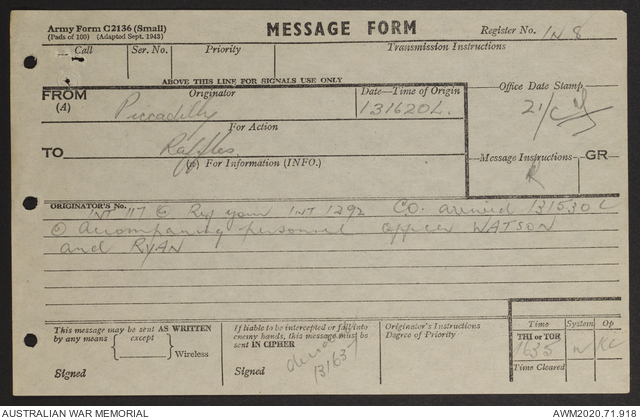 Army Form C2136 (Small)
(Pads of 100) (Adapted Sept. 1943)
MESSAGE FORM
Register No. IN 8
Call Ser. No. Priority Transmission Instructions
ABOVE THIS LINE FOR SIGNALS USE ONLY
FROM (A) Originator Date—Time of Origin Office Date Stamp
Piccadilly 131620L. 21/
For Action
TO Raffles
(W) For Information (INFO.) Message Instructions GR
R
ORIGINATOR'S No.
INT 117 Ref your INT 1292 CO. arrived 131530L
Accompanying personnel officer WATSON
and RYAN
This message may be sent AS WRITTEN
by any means except
Wireless
Signed
If liable to be intercepted or fall into
enemy hands, this message must be
sent IN CIPHER
Signed
13163
Originator's Instructions
Degree of Priority
Time System Op
THI or TOR
1635 W KC
Time Cleared
AUSTRALIAN WAR MEMORIAL AWM2020.71.918